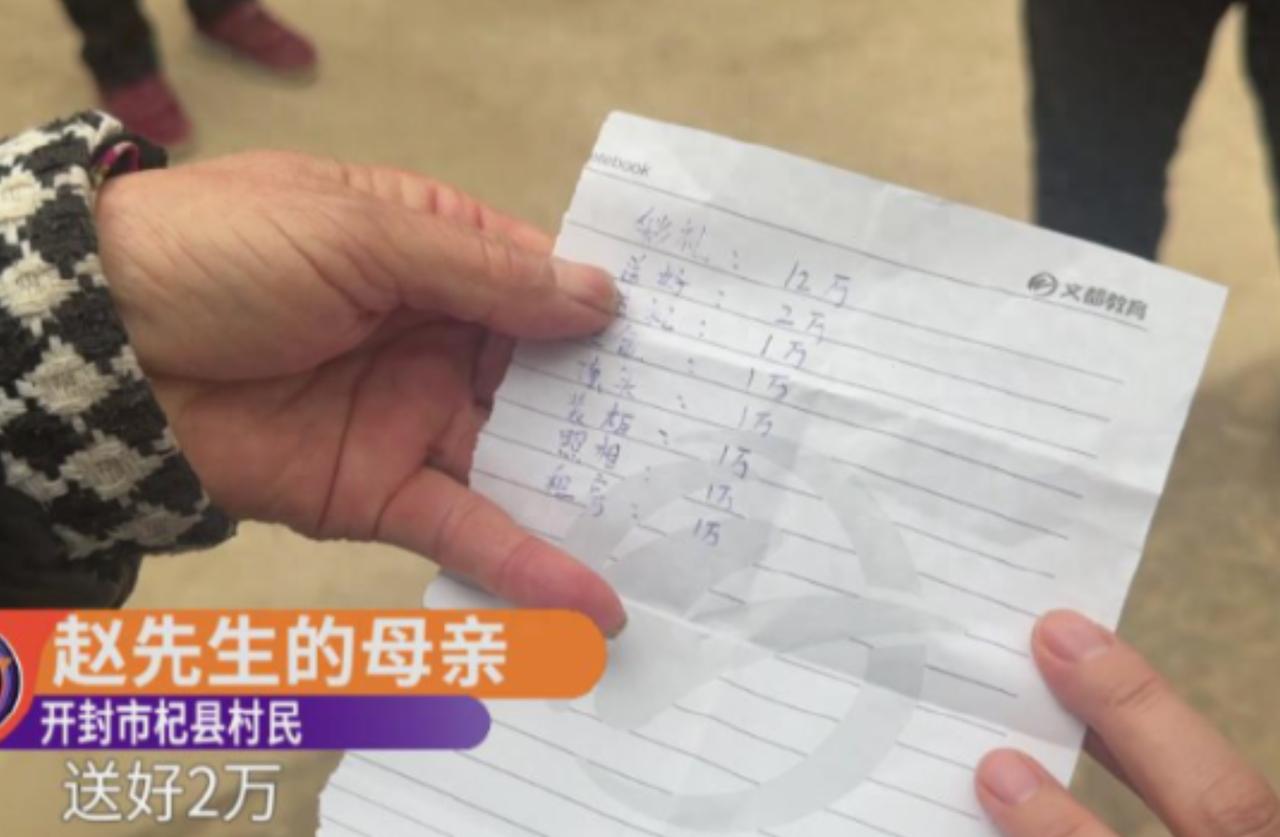 otebook
文都教育
礼：12万
送好：2万
礼：1万
：1万
头：1万
装箱：1万
照相：1万
：1万
赵先生的母亲
开封市杞县村民
送好2万